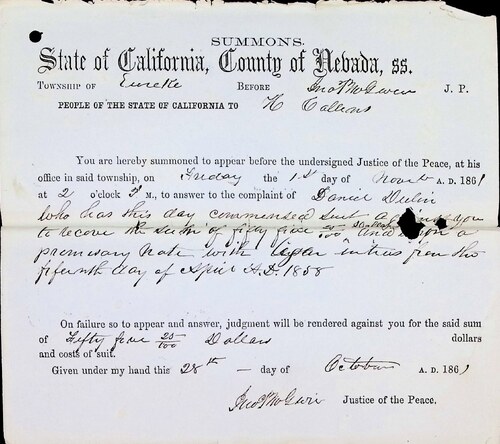 SUMMONS.
State of California, County of Nevada, ss.
TOWNSHIP OF Eureke BEFORE Jno P McGwin J. P.
PEOPLE OF THE STATE OF CALIFORNIA TO H
You are hereby summoned to appear before the undersigned Justice of the Peace, at
his office in said township, on Friday the 1st day of A. D. 1861
at 2 o'clock P M., to answer to the complaint of Daniel
who has this day commensed suit you
to recove the sum of fifty five 25/100 and upon a
premisary note with from the
fifteenth day of April A.D. 1858
On failure so to appear and answer, judgment will be rendered against you for the said sum
of Fifty five 25/100 Dollars dollars
and costs of suit.
Given under my hand this 28th day of October A. D. 1861
Jno P McGwin Justice of the Peace.